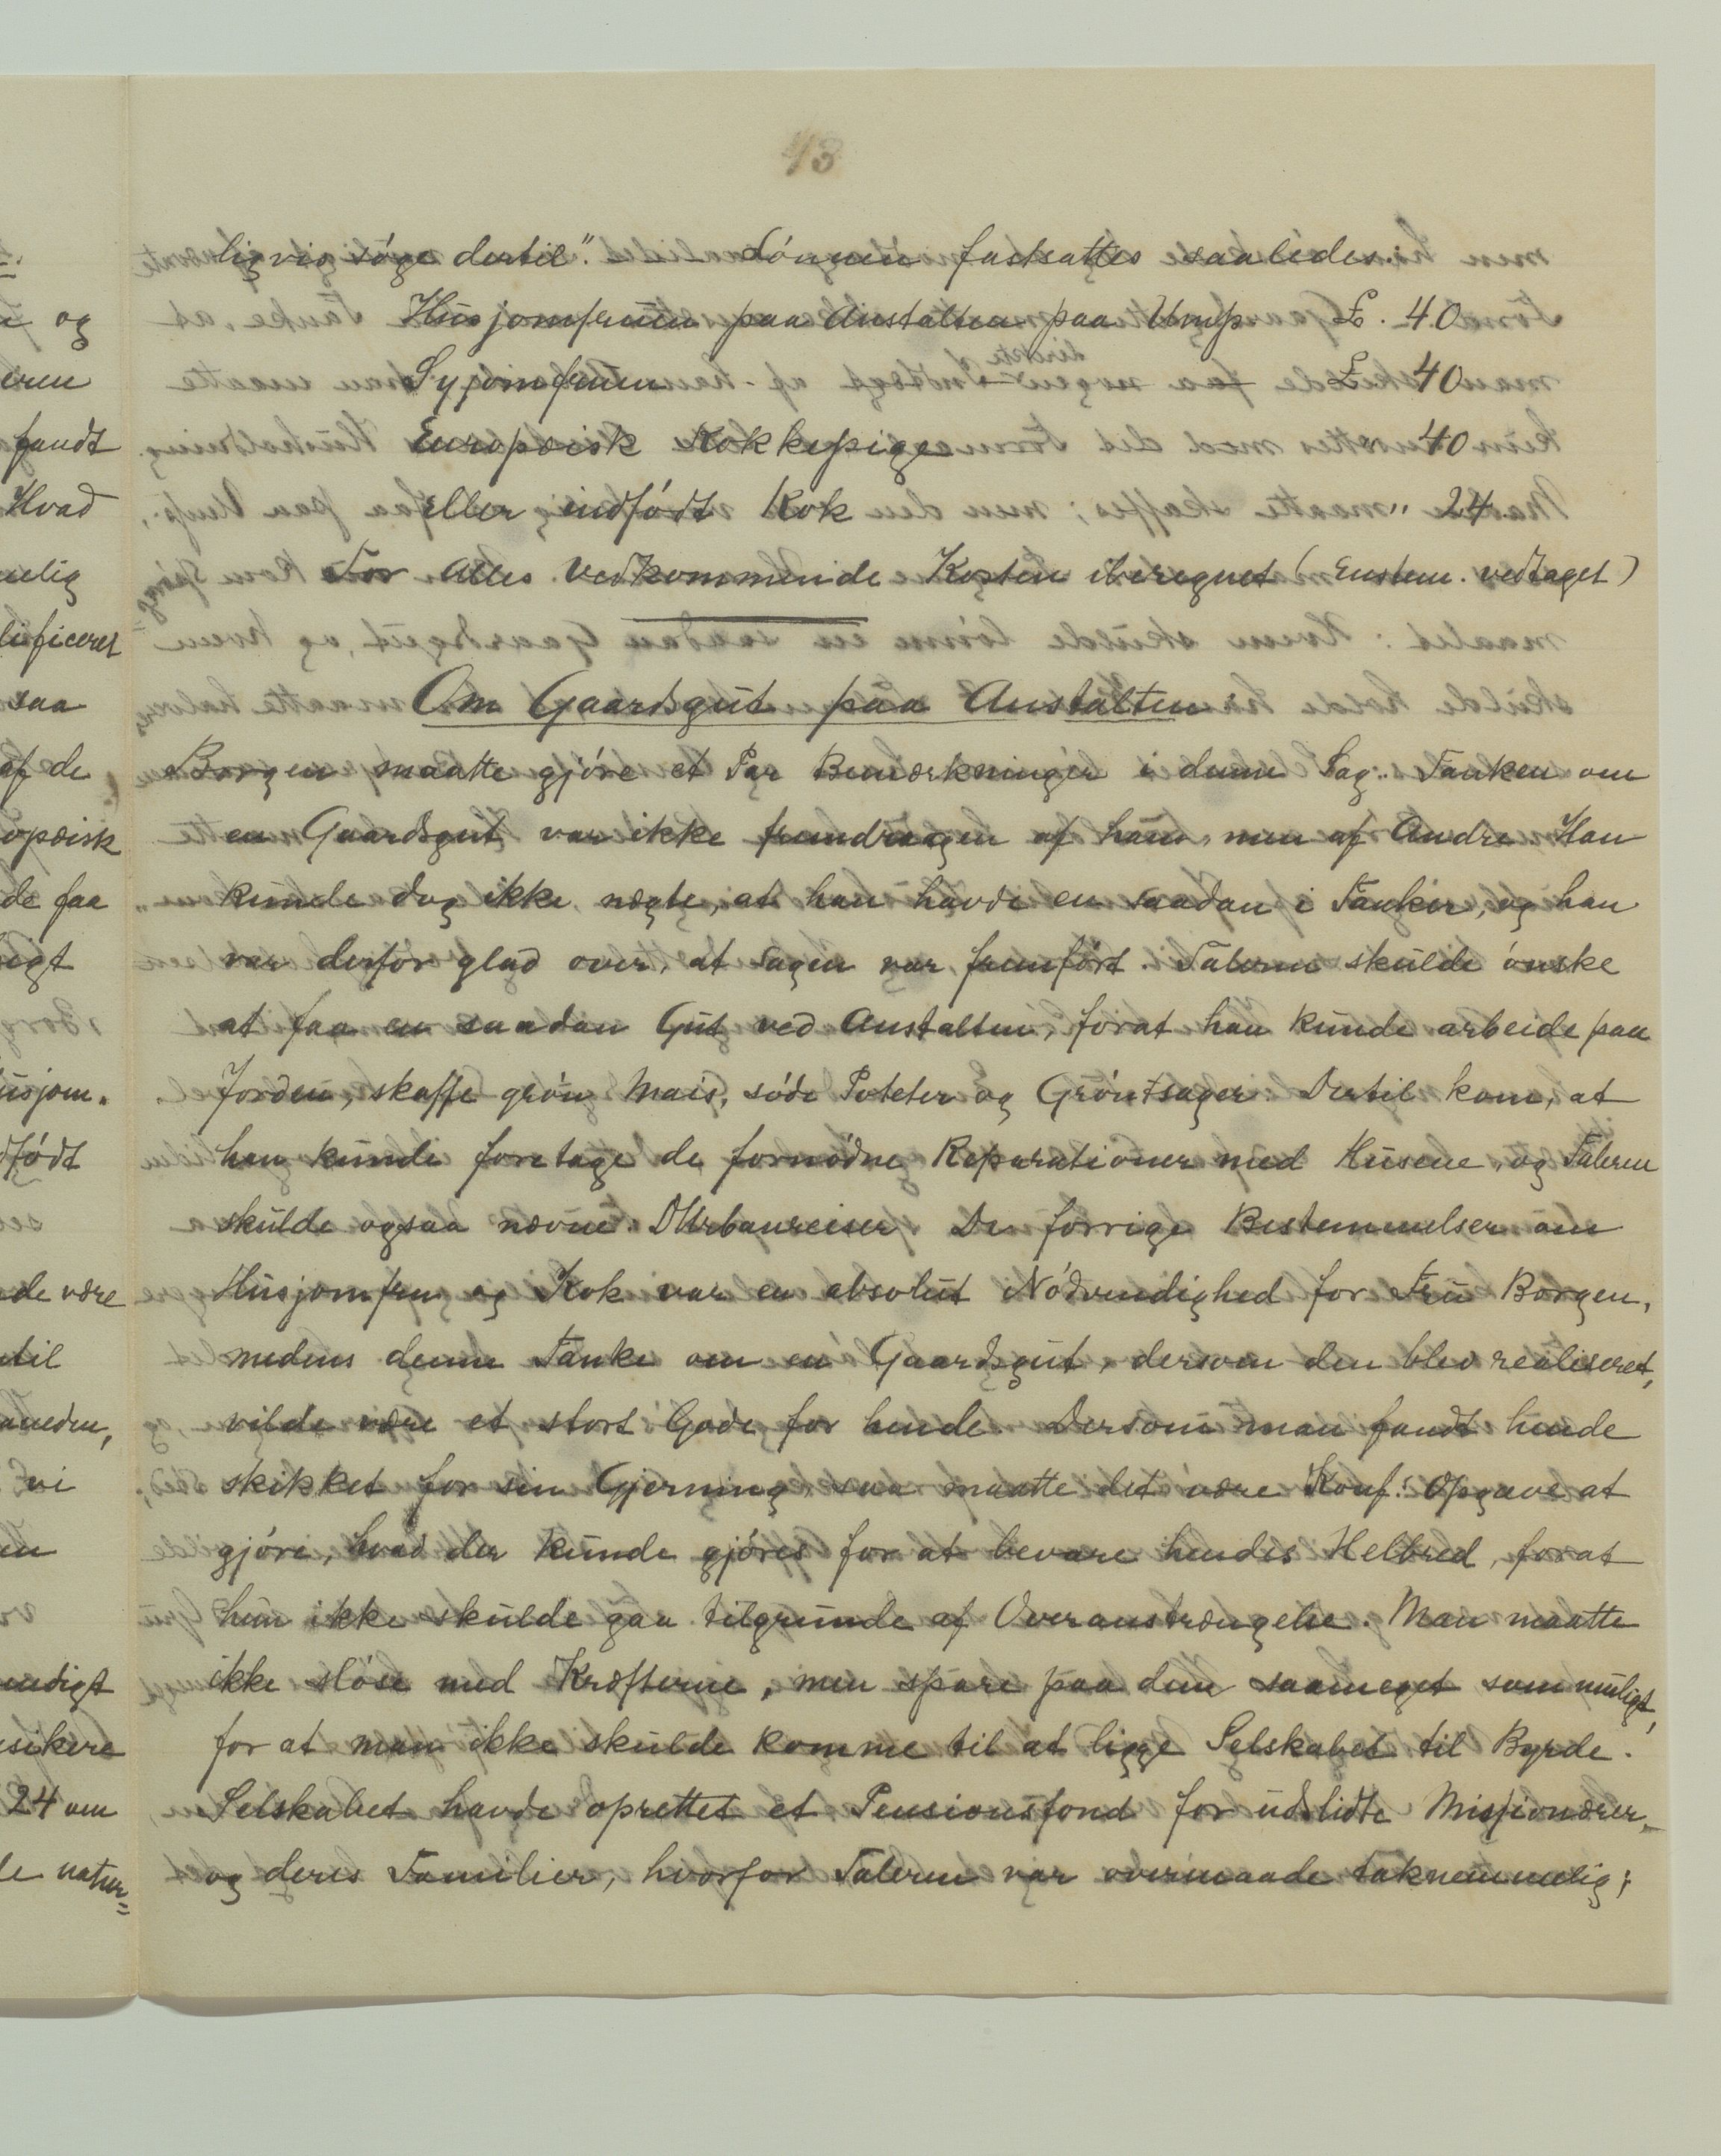 43
ligvis söge dertil". Lönnen fastsattes saaledes:
Husjomfruen paa Anstalten paa Ump £. 40
Syjomfruen £ 40
Europæisk Kokkepige 40
eller indfödt Kok " 24.
For Alles Vedkommende Kosten iberegnet (Enstem. vedtaget)
Om Gaardsgut paa Anstalten
Borgen maatte gjöre et Par Bemærkninger i denne Sag. Tanken om
en Gaardsgut var ikke fremdragen af ham, men af Andre. Han
kunde dog ikke nægte, at han havde en saadan i Tanker, og han
var derfor glad over, at Sagen var fremfört. Taleren skulde önske
at faa en saadan Gut ved Anstalten, forat han kunde arbeide paa
Jorden, skaffe grön Mais, söde Poteter og Gröntsager. Dertil kom, at
han kunde foretage de fornödne Reparationer med Husene, og Taleren
skulde ogsaa nævne Durbanreiser. De forrige Bestemmelser om
Husjomfru og Kok var en absolut Nödvendighed for Fru Borgen,
medens denne Tanke om en Gaardsgut, dersom den blev realiseret,
vilde være et stort Gode for hende. Dersom man fandt hende
skikket for sin Gjerning, saa maatte det være Konf: Opgave at
gjöre, hvad der kunde gjöres for at bevare hendes Helbred, forat
hun ikke skulde gaa tilgrunde af Overanstrængelse. Man maatte
ikke slöse med Kræfterne, men spare paa dem saameget som muligt,
for at man ikke skulde komme til at ligge Selskabet til Byrde.
Selskabet havde oprettet et Pensionsfond for udslidte Missionærer
og deres Familier, hvorfor Taleren var overmaade taknemmelig;
og
fandt
Hvad
saa
af de
de faa
vi
24 om